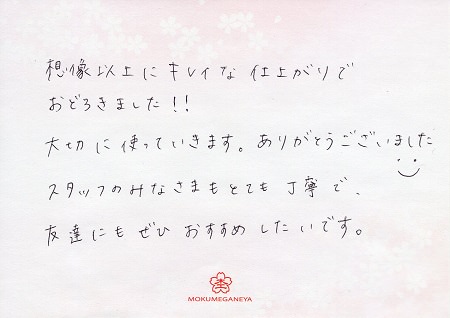 想像以上にキレイな仕上がりで
おどろきました!!
大切に使っていきます。ありがとうございました
スタッフのみなさまもとても丁寧で、
友達にもぜひおすすめしたいです。
MOKUMEGANEYA